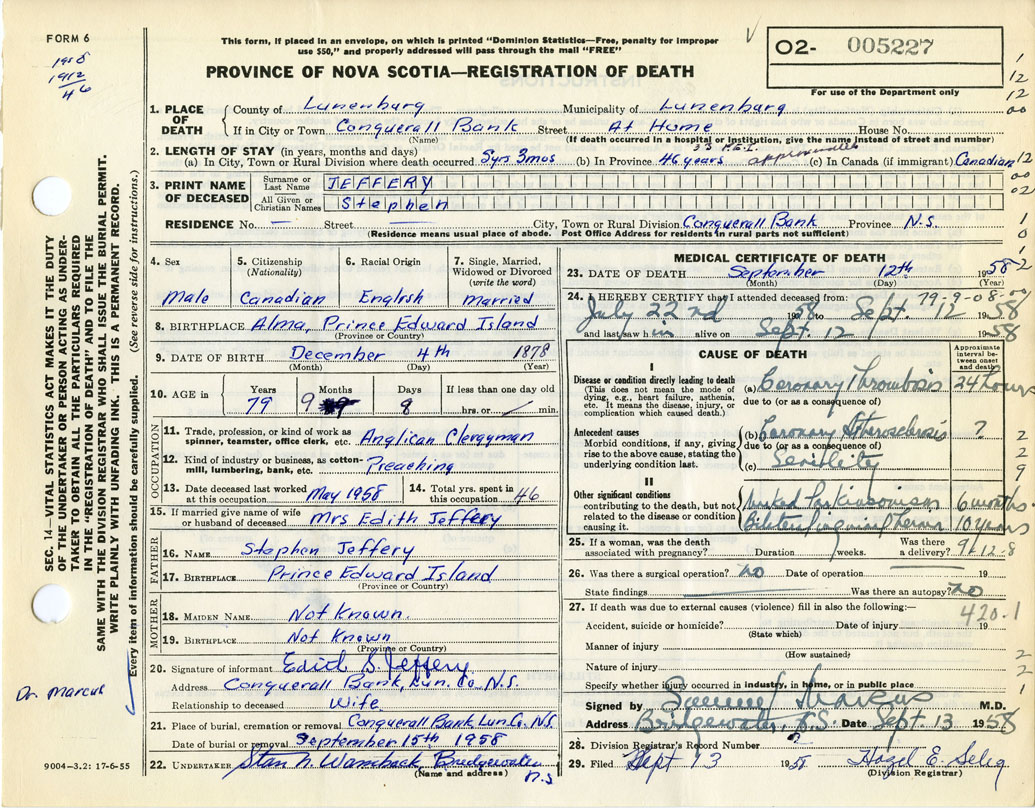 FORM 6
1958
1912
46
This form, if placed in an envelope, on which is printed "Dominion Statistics—Free, penalty for improper
use $50," and properly addressed will pass through the mail "FREE"
PROVINCE OF NOVA SCOTIA—REGISTRATION OF DEATH
O2- 005227
For use of the Department only
1. PLACE OF DEATH
County of Lunenburg Municipality of Lunenburg
If in City or Town Conquerall Bank Street At Home House No.
(Name) (If death occurred in a hospital or institution, give the name instead of street and number)
2. LENGTH OF STAY (in years, months and days) 33 P.E.I. approximately
(a) In City, Town or Rural Division where death occurred 3yrs 3mos (b) In Province 46 years (c) In Canada (if immigrant) Canadian
3. PRINT NAME OF DECEASED
Surname or Last Name JEFFERY
All Given or Christian Names Stephen
RESIDENCE No. — Street — City, Town or Rural Division Conquerall Bank Province N.S.
(Residence means usual place of abode. Post Office Address for residents in rural parts not sufficient)
4. Sex
Male
5. Citizenship
(Nationality)
Canadian
6. Racial Origin
English
7. Single, Married,
Widowed or Divorced
(write the word)
Married
8. BIRTHPLACE Alma, Prince Edward Island
(Province or Country)
9. DATE OF BIRTH December 4th 1878
(Month) (Day) (Year)
10. AGE in
Years Months Days If less than one day old
79 9 8 hrs. or min.
OCCUPATION
11. Trade, profession, or kind of work as
spinner, teamster, office clerk, etc. Anglican Clergyman
12. Kind of industry or business, as cotton-
mill, lumbering, bank, etc. Preaching
13. Date deceased last worked
at this occupation May 1958
14. Total yrs. spent in
this occupation 46
15. If married give name of wife
or husband of deceased Mrs Edith Jeffery
FATHER
16. NAME Stephen Jeffery
17. BIRTHPLACE Prince Edward Island
(Province or Country)
MOTHER
18. MAIDEN NAME Not Known.
19. BIRTHPLACE Not Known
(Province or Country)
20. Signature of informant Edith S Jeffery
Address Conquerall Bank, Lun. Co. N.S.
Relationship to deceased Wife
21. Place of burial, cremation or removal Conquerall Bank Lun Co. N.S.
Date of burial or removal September 15th 1958
22. UNDERTAKER Bridgewater
N.S
(Name and address)
MEDICAL CERTIFICATE OF DEATH
23. DATE OF DEATH September 12th 1958
(Month) (Day) (Year)
24. I HEREBY CERTIFY that I attended deceased from: 79-9-08-00
July 22nd 1958 to Sept. 12 1958
and last saw him alive on Sept. 12 1958
CAUSE OF DEATH
Approximate interval between onset and death
I
Disease or condition directly leading to death
(This does not mean the mode of
dying, e.g., heart failure, asthenia,
etc. It means the disease, injury, or
complication which caused death.)
(a) Coronary Thrombosis 24 hours
due to (or as a consequence of)
Antecedent causes
Morbid conditions, if any, giving
rise to the above cause, stating the
underlying condition last.
(b) Coronary Atherosclerosis ?
due to (or as a consequence of)
(c) Senility
II
Other significant conditions
contributing to the death, but not
related to the disease or condition
causing it.
Marked Parkinsonism 6 months
Bilateral inguinal hernia 10 years
25. If a woman, was the death
associated with pregnancy? Duration weeks. Was there
a delivery? 9-12-8
26. Was there a surgical operation? no Date of operation 19
State findings Was there an autopsy? no
27. If death was due to external causes (violence) fill in also the following:—
420.1
Accident, suicide or homicide? Date of injury 19
(State which)
Manner of injury
(How sustained)
Nature of injury
Specify whether injury occurred in industry, in home, or in public place
Signed by Samuel Marcus M.D.
Address Bridgewater, N.S. Date Sept 13 1958
28. Division Registrar's Record Number
29. Filed Sept 13 1958 Hazel E. Selig
(Division Registrar)
SEC. 14—VITAL STATISTICS ACT MAKES IT THE DUTY
OF THE UNDERTAKER OR PERSON ACTING AS UNDER-
TAKER TO OBTAIN ALL THE PARTICULARS REQUIRED
IN THE "REGISTRATION OF DEATH" AND TO FILE THE
SAME WITH THE DIVISION REGISTRAR WHO SHALL ISSUE THE BURIAL PERMIT.
WRITE PLAINLY WITH UNFADING INK. THIS IS A PERMANENT RECORD.
Every item of information should be carefully supplied. (See reverse side for instructions.)
Dr. Marcus
9004—3.2: 17-6-55
1
12
12
00
12
00
02
1
0
1
2
2
2
9
9
2
2
1